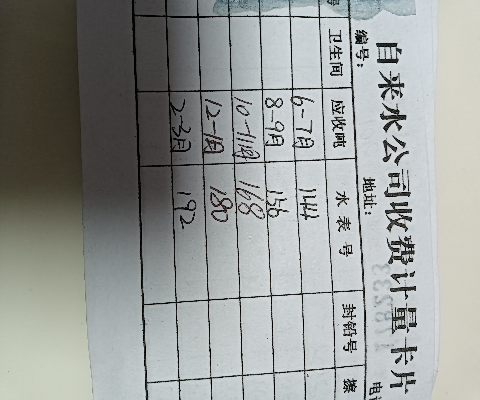 自来水公司收费计量卡片
编号: 地址: 电
卫生间 应收吨 水表号 封铅号
6-7月 144
8-9月 156
10-11月 168
12-1月 180
2-3月 192